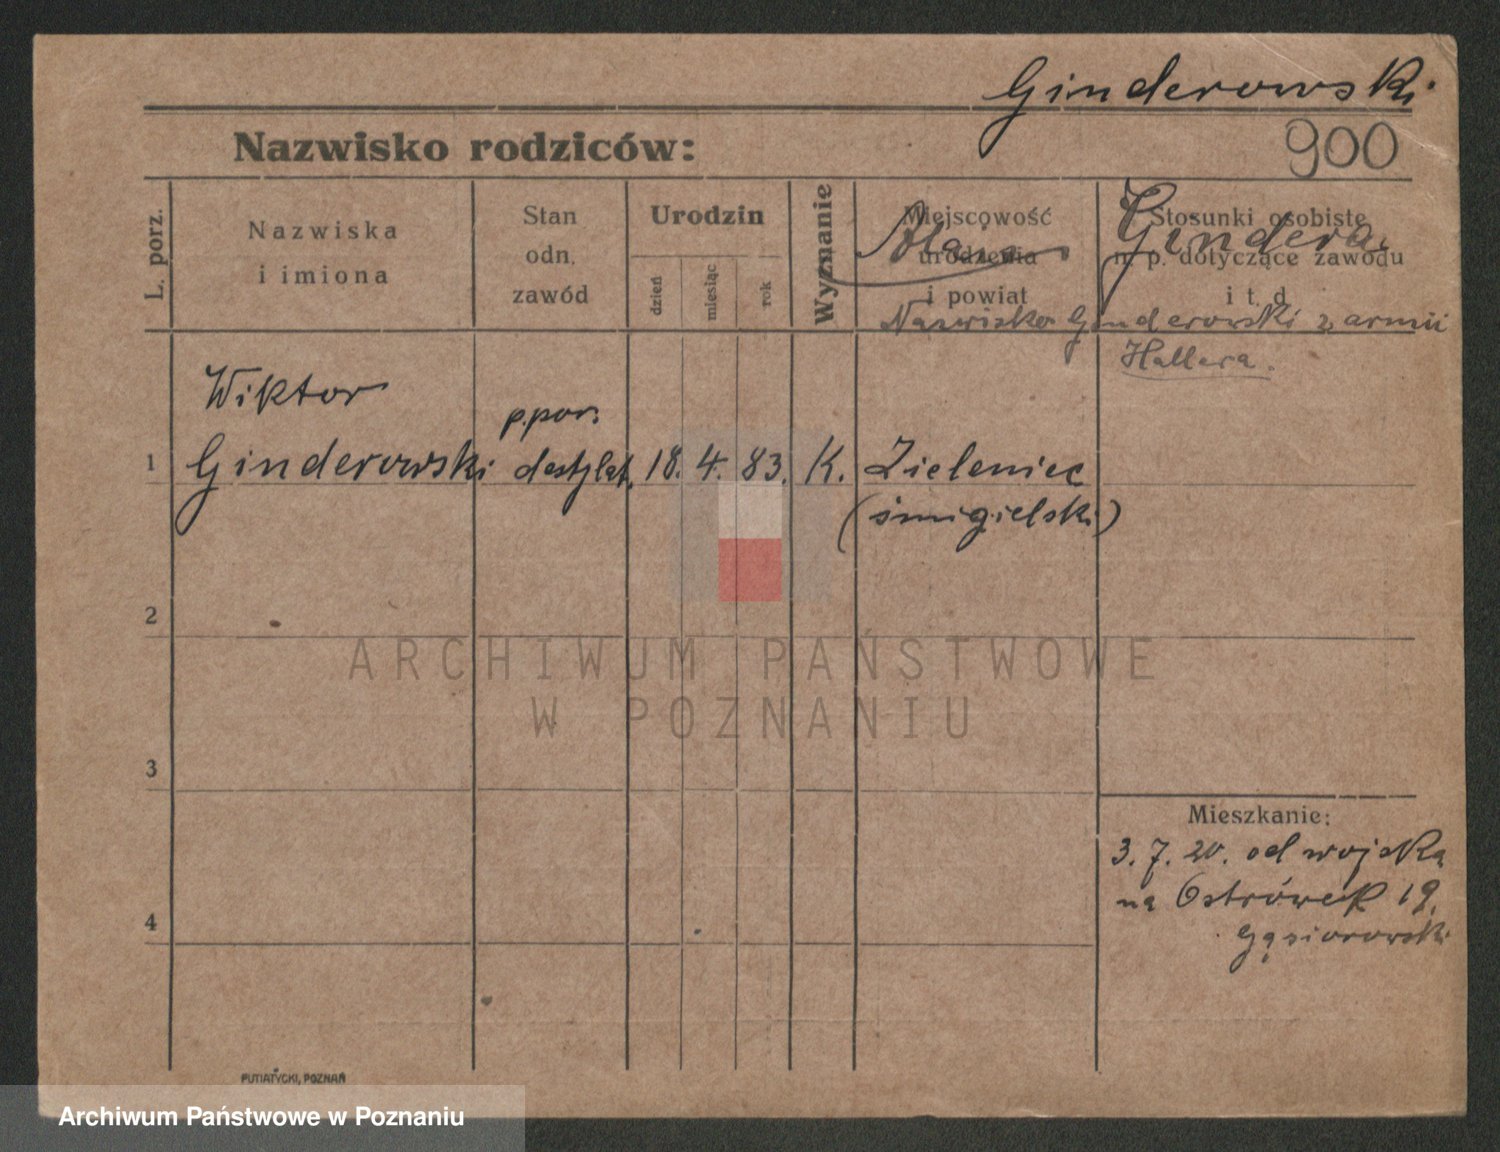 Ginderowski.
Nazwisko rodziców:
900
L. porz.
Nazwiska
i imiona
Stan
odn.
zawód
Urodzin
dzień
miesiąc
rok
Wyznanie
Miejscowość
urodzenia
i powiat
Stosunki osobiste
n. p. dotyczące zawodu
i t. d
Gindera
Nazwisko Ginderowski z armii
Hallera.
Wiktor
p.por.
1 Ginderowski destylat. 18. 4. 83. K. Zieleniec
(śmigielski)
2
ARCHIWUM PAŃSTWOWE
W POZNANIU
3
Mieszkanie:
3. 7. 20. od wojska
na Ostrówek 19.
Gąsiorowski
4
PUTIATYCKI, POZNAŃ
Archiwum Państwowe w Poznaniu